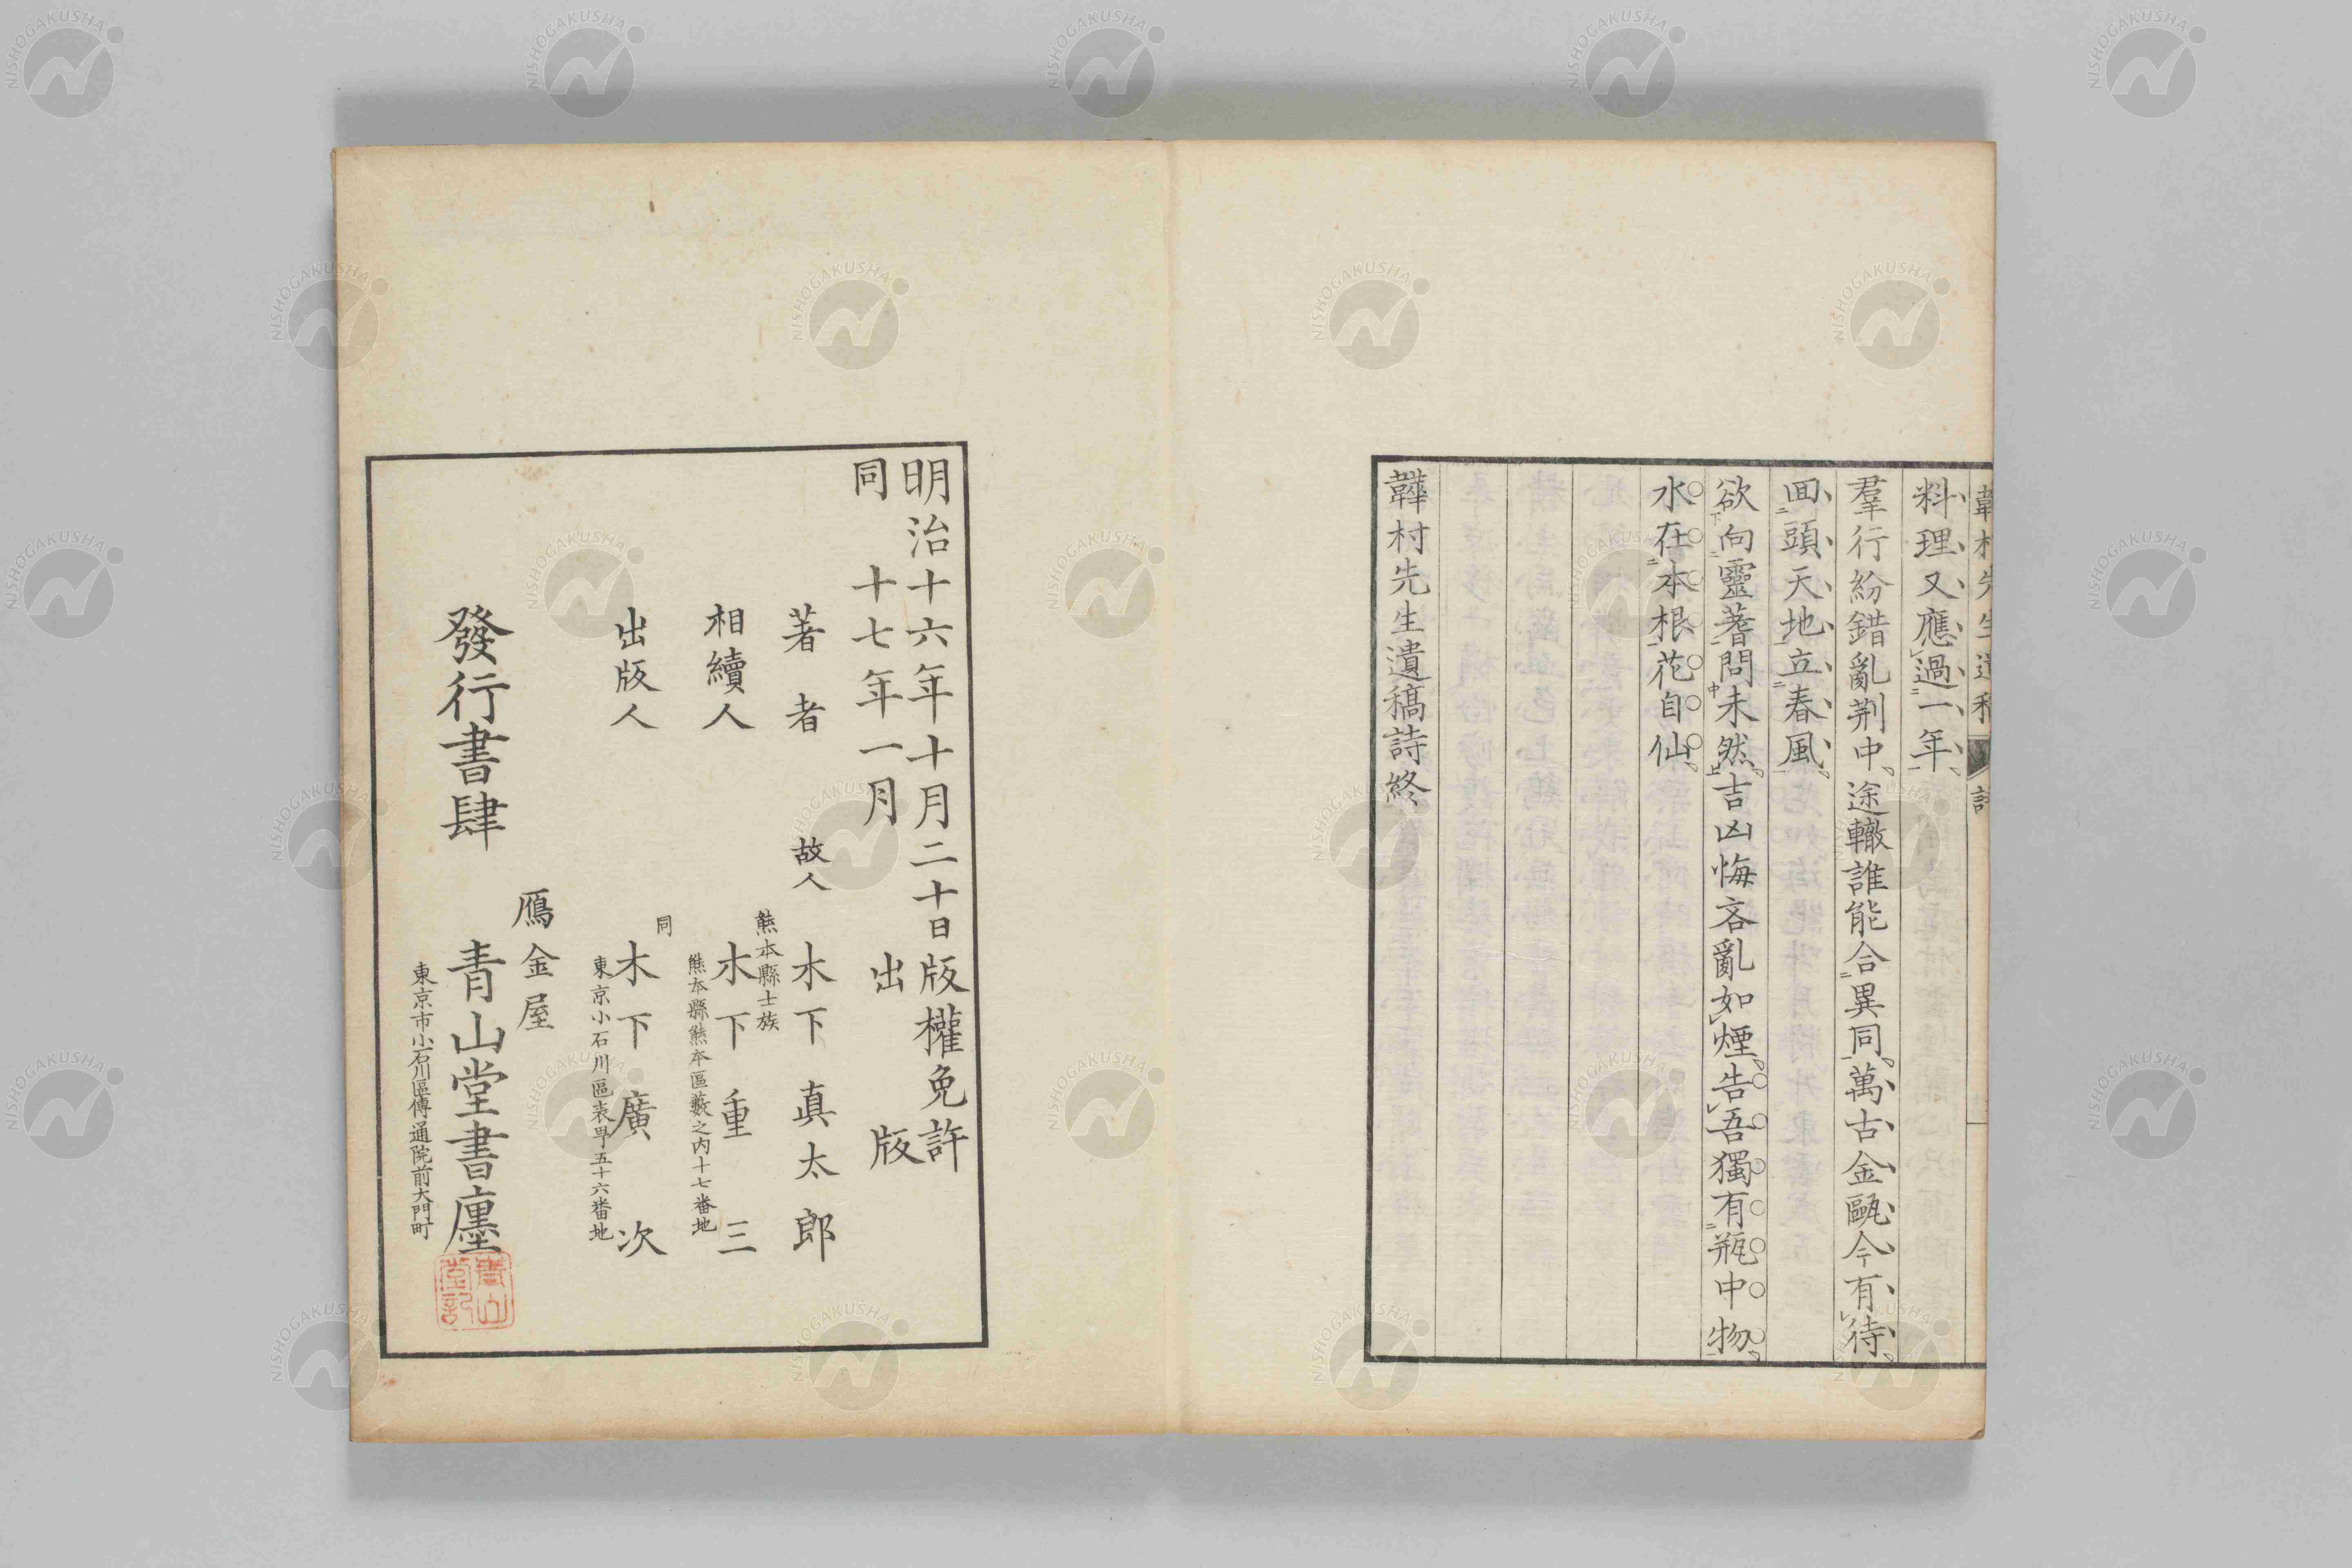 韡村先生遺稿 詩
料理又應過一年
羣行紛錯亂荆中途轍誰能合異同萬古金甌今有待
回頭天地立春風
欲向靈蓍問未然吉凶悔吝亂如煙告吾獨有瓶中物
水在本根花自仙
韡村先生遺稿詩終
明治十六年十月二十日版權免許
同 十七年一月 出版
著者 故人 木下真太郎
熊本縣士族
相續人 木下重三
熊本縣熊本區藪之内十七番地
同
出版人 木下廣次
東京小石川區表町五十六番地
鴈金屋
發行書肆 青山堂書廛
東京市小石川區傳通院前大門町
青山堂記
NISHOGAKUSHA